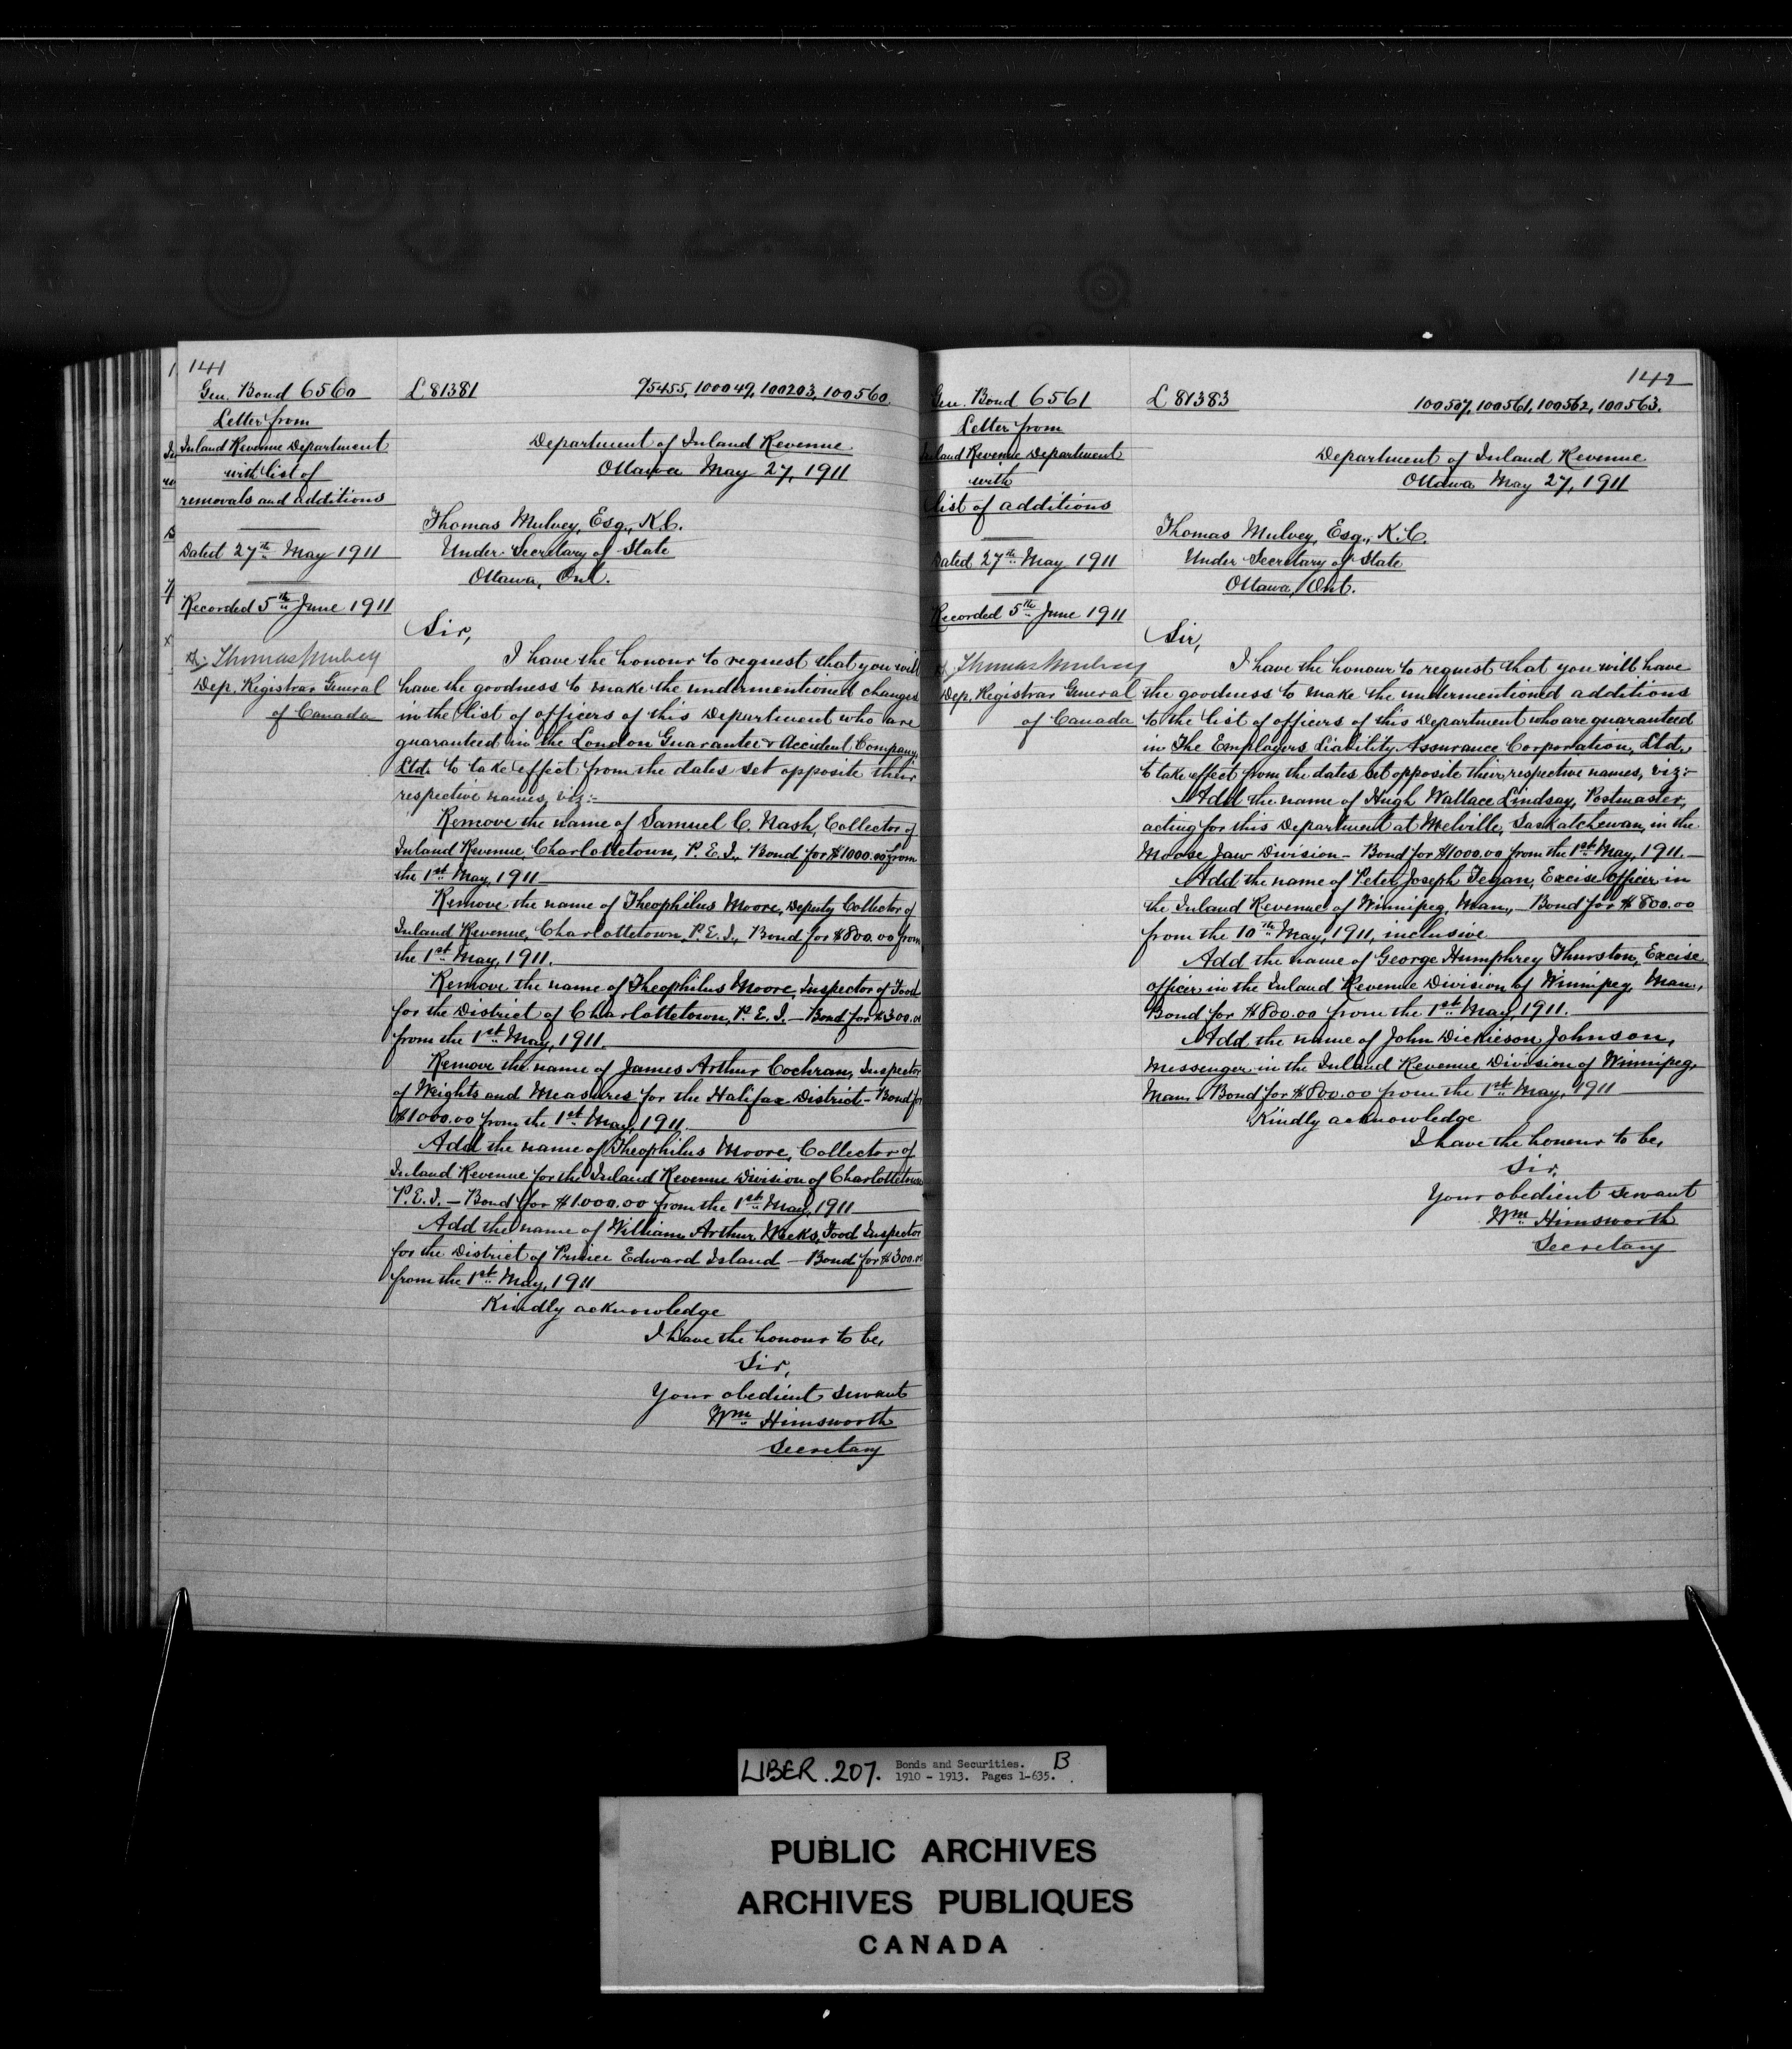 141
Gen. Bond 6560
Letter from
Inland Revenue Department
with list of
removals and additions
Dated 27th May 1911
Recorded 5th June 1911
Thomas Mulvey
Dep. Registrar General
of Canada
L 81381 75455, 100049, 100203, 100560.
Department of Inland Revenue
Ottawa May 27, 1911
Thomas Mulvey, Esq., K.C.
Under Secretary of State
Ottawa, Ont.
Sir,
I have the honour to request that you will
have the goodness to make the undermentioned changes
in the list of officers of this Department who are
guaranteed in the London Guarantee & Accident Company,
Ltd. to take effect from the dates set opposite their
respective names, viz:-
Remove the name of Samuel C. Nash, Collector of
Inland Revenue, Charlottetown, P.E.I., Bond for $1000.00 from
the 1st May, 1911
Remove the name of Theophilus Moore, Deputy Collector of
Inland Revenue, Charlottetown, P.E.I., Bond for $800.00 from
the 1st May, 1911.
Remove the name of Theophilus Moore, Inspector of Food
for the District of Charlottetown, P.E.I. - Bond for $300.00
from the 1st May, 1911.
Remove the name of James Arthur Cochran, Inspector
of Weights and Measures for the Halifax District - Bond for
$1000.00 from the 1st May, 1911.
Add the name of Theophilus Moore, Collector of
Inland Revenue for the Inland Revenue Division of Charlottetown
P.E.I. - Bond for $1.000.00 from the 1st May, 1911
Add the name of William Arthur Weeks, Food Inspector
for the District of Prince Edward Island - Bond for $300.00
from the 1st May, 1911
Kindly acknowledge
I have the honour to be,
Sir,
Your obedient servant
Wm Himsworth
Secretary
142
Gen. Bond 6561
Letter from
Inland Revenue Department
with
list of additions
Dated 27th May 1911
Recorded 5th June 1911
Thomas Mulvey
Dep. Registrar General
of Canada
L 81383 100507, 100561, 100562, 100563.
Department of Inland Revenue
Ottawa May 27, 1911
Thomas Mulvey, Esq., K.C.
Under Secretary of State
Ottawa, Ont.
Sir,
I have the honour to request that you will have
the goodness to make the undermentioned additions
to the list of officers of this Department who are guaranteed
in The Employers Liability Assurance Corporation, Ltd.,
to take effect from the dates set opposite their respective names, viz:-
Add the name of Hugh Wallace Lindsay, Postmaster,
acting for this Department at Melville, Saskatchewan, in the
Moose Jaw Division - Bond for $1000.00 from the 1st May, 1911.
Add the name of Peter Joseph Tegan, Excise Officer in
the Inland Revenue of Winnipeg, Man., - Bond for $800.00
from the 10th May, 1911, inclusive
Add the name of George Humphrey Thurston, Excise
officer in the Inland Revenue Division of Winnipeg, Man.,
Bond for $800.00 from the 1st May, 1911.
Add the name of John Dickieson Johnson,
Messenger in the Inland Revenue Division of Winnipeg,
Man. Bond for $800.00 from the 1st May, 1911
Kindly acknowledge
I have the honour to be,
Sir,
Your obedient servant
Wm Himsworth
Secretary
LIBER. 207. Bonds and Securities. B
1910 - 1913. Pages 1-635.
PUBLIC ARCHIVES
ARCHIVES PUBLIQUES
CANADA